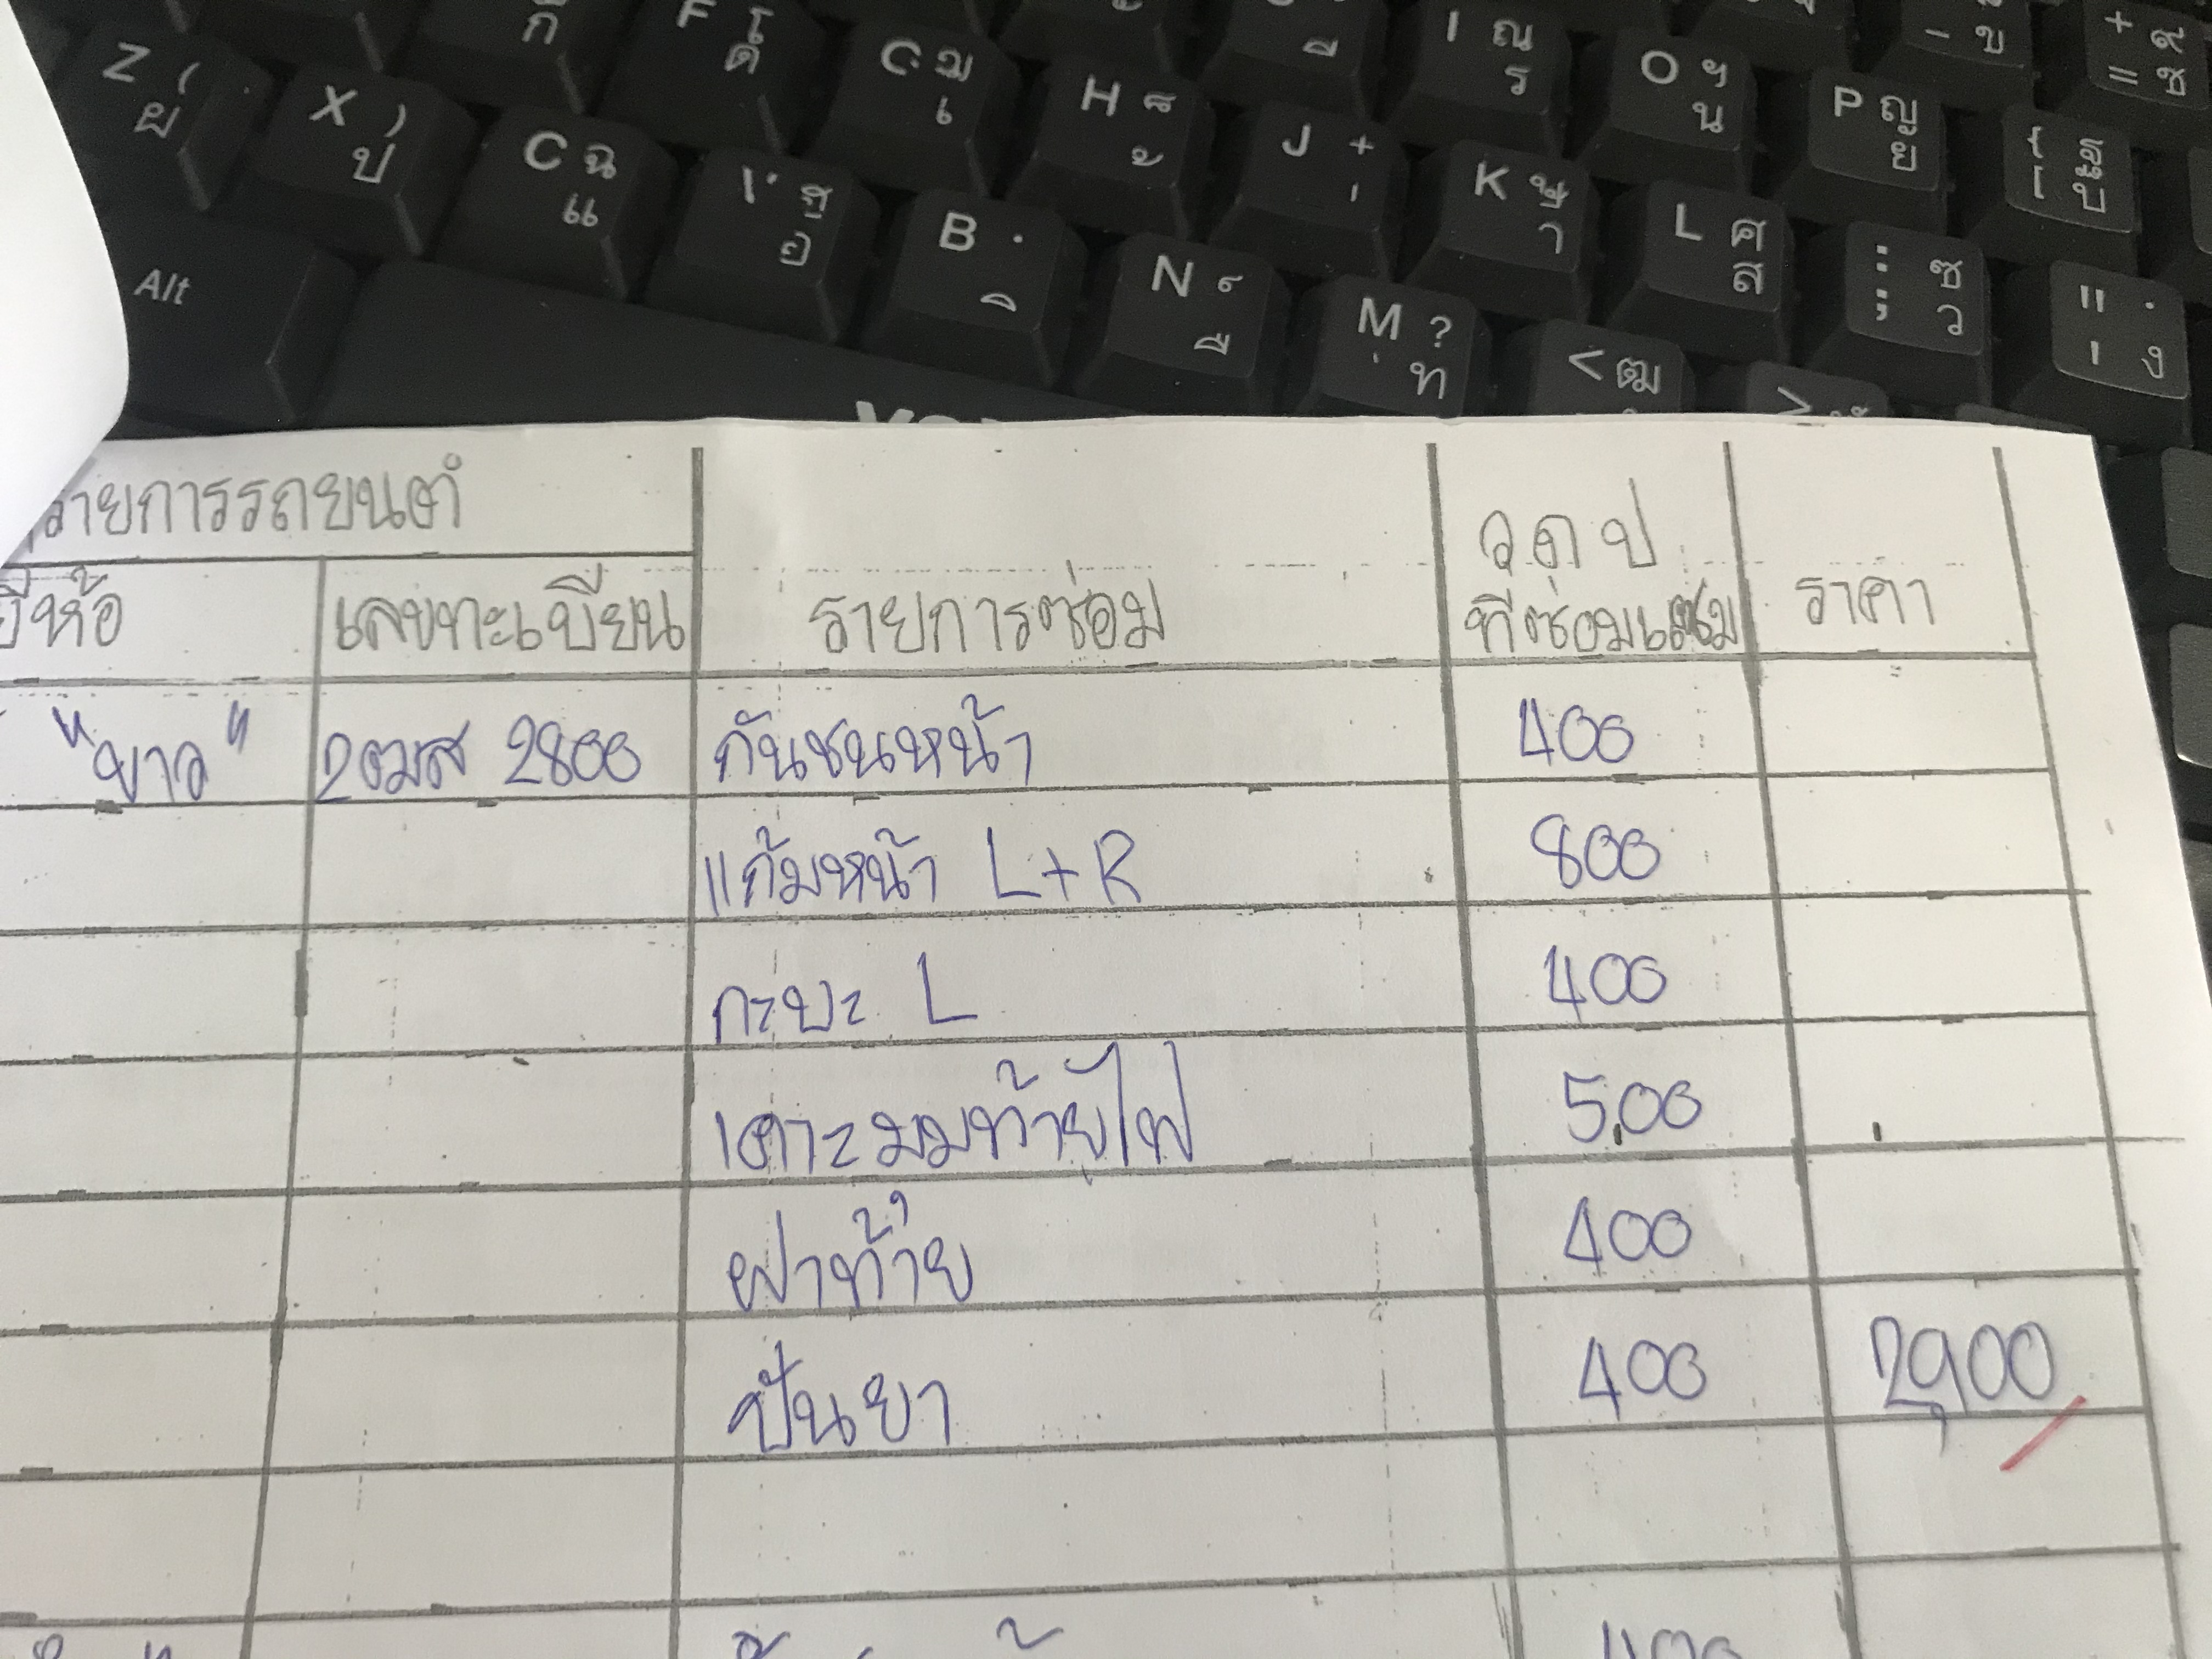 Z ( ผ
X ) ป
C ฉ แ
V ฮ อ
B ิ
N ์ ื
M ? ท
< ฒ
F โ ด
G ฌ เ
H ็ ้
J ๋ ่
K ษ า
L ศ ส
: ; ซ ว
" ' . ง
I ณ ร
O ฯ น
P ญ ย
{ [ ฐ บ
- ข
+ = ๙ ช
Alt
รายการรถยนต์
ยี่ห้อ เลขทะเบียน รายการซ่อม ว ด ป ที่ซ่อมแซม ราคา
"ขาว" 2ฒส 2800 กันชนหน้า 400
แก้มหน้า L+R 800
กะบะ L 400
เคาะมุมท้ายไฟ 500
ฝาท้าย 400
ปั่นยา 400 2,900
400